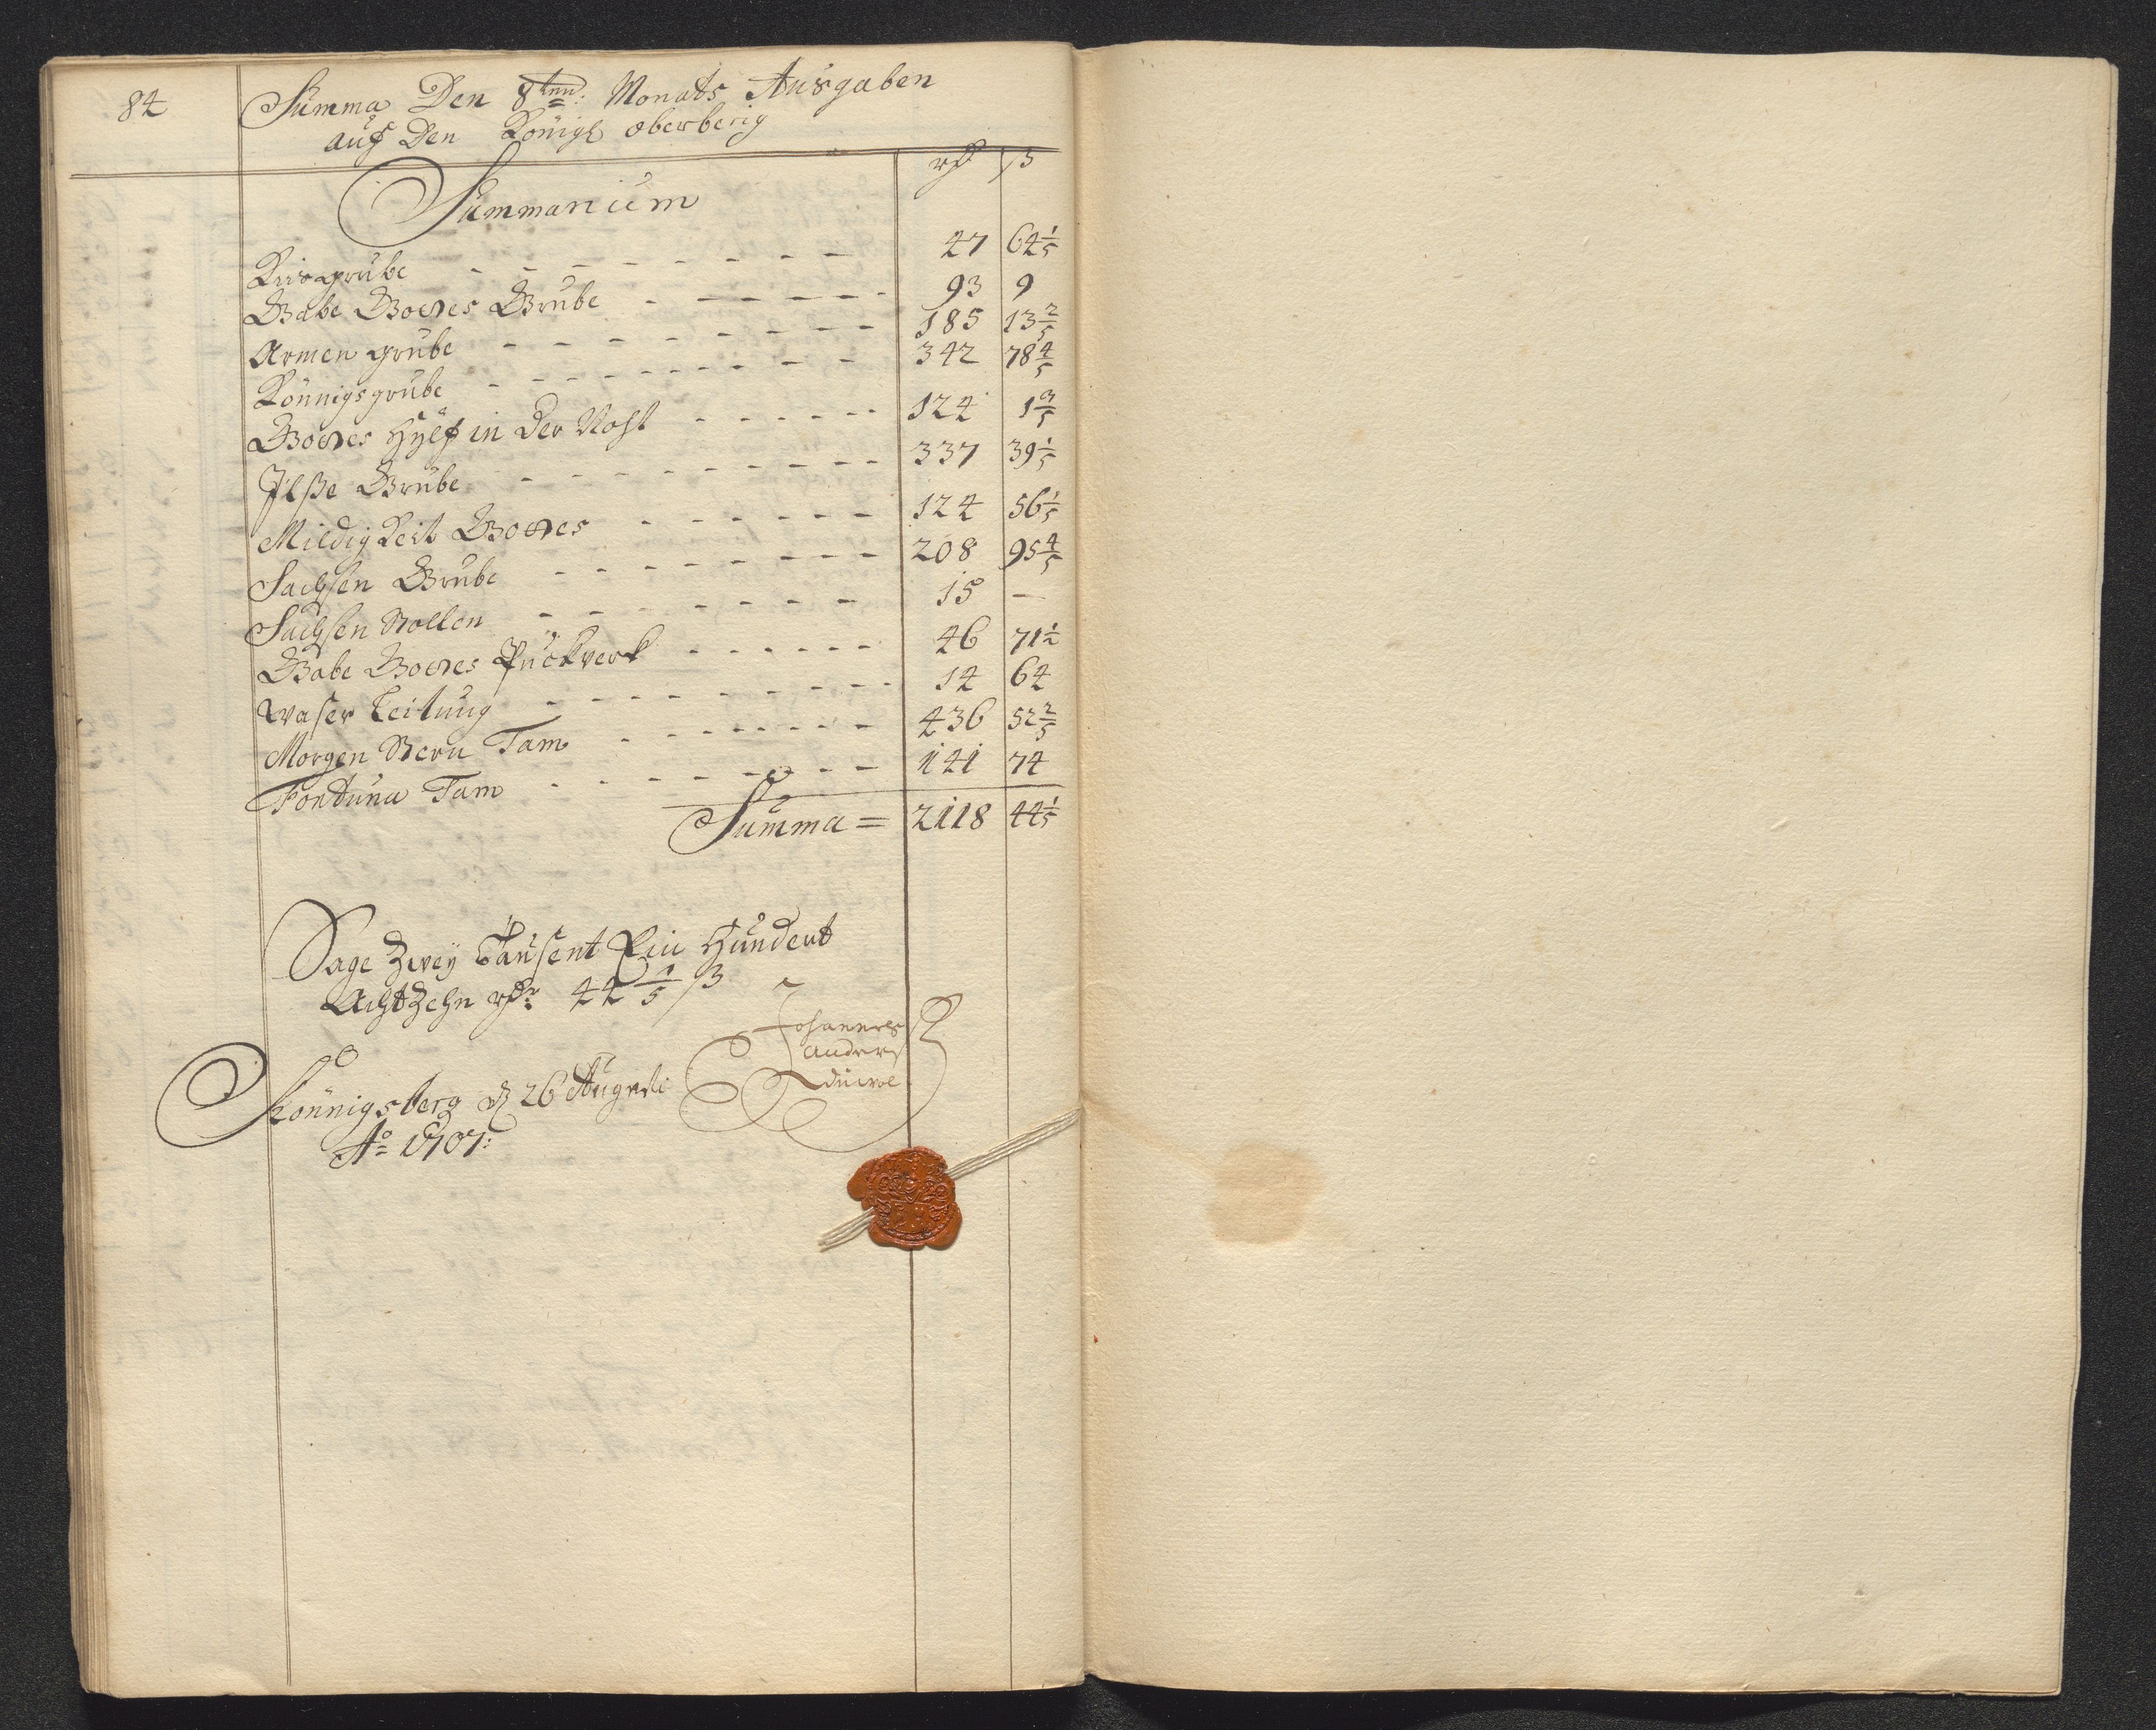 84
Summa Den 8tnn: Monats Ausgaben
auf Den Königl oberberig
rd ß
Summarium
Kisgrube - - - - - - - - - 47 64 1/5
Gabe Gottes Grube - - - - - - - 93 9
Armen grube - - - - - - - - 185 13 2/5
Könnigs grube - - - - - - - - - 342 78 4/5
Gottes Hylf in der Noht - - - - - - 124 1 3/5
Ilße Grube - - - - - - - - - - 337 39 1/5
Mildigkeit Gottes - - - - - - - 124 56 1/5
Sachsen Grube - - - - - - - - - 208 95 4/5
Sachsen Stollen - - - - - - - - 15 —
Gabe Gottes Puckverk - - - - - - 46 71 1/2
Waser Leitung - - - - - - - - - 14 64
Morgen Stern Tam - - - - - - - - 436 52 2/5
Fortuna Tam - - - - - - - - - 141 74
Summa = 2118 44 1/5
Sage Zwey Tausent Ein Hundert
Achtzehn rdr: 44 1/5 ß
Johannes
anders
Könnigsberg d 26 Augusti
Ao 1707: